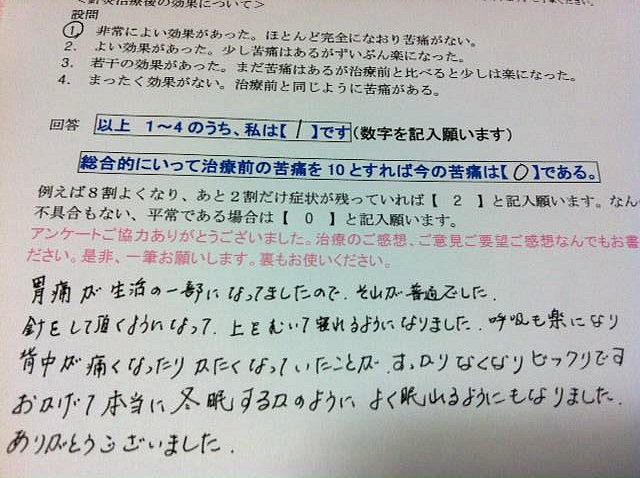 ＜針灸治療後の効果について＞
設問
1. 非常によい効果があった。ほとんど完全になおり苦痛がない。
2. よい効果があった。少し苦痛はあるがずいぶん楽になった。
3. 若干の効果があった。まだ苦痛はあるが治療前と比べると少しは楽になった。
4. まったく効果がない。治療前と同じように苦痛がある。
回答 以上 1～4のうち、私は【 1 】です(数字を記入願います)
総合的にいって治療前の苦痛を10とすれば今の苦痛は【 0 】である。
例えば８割よくなり、あと２割だけ症状が残っていれば【 2 】と記入願います。なん
不具合もない、平常である場合は【 0 】と記入願います。
アンケートご協力ありがとうございました。治療のご感想、ご意見ご要望ご感想なんでもお書
ださい。是非、一筆お願いします。裏もお使いください。
胃痛が生活の一部になってましたので、それが普通でした.
針をして頂くようになって、上をむいて寝れるようになりました. 呼吸も楽になり
背中が痛くなったりカたくなっていたことが、すっカリなくなりビックリです
おカげで本当に冬眠するカのように よく眠れるようにもなりました.
ありがとうございました.